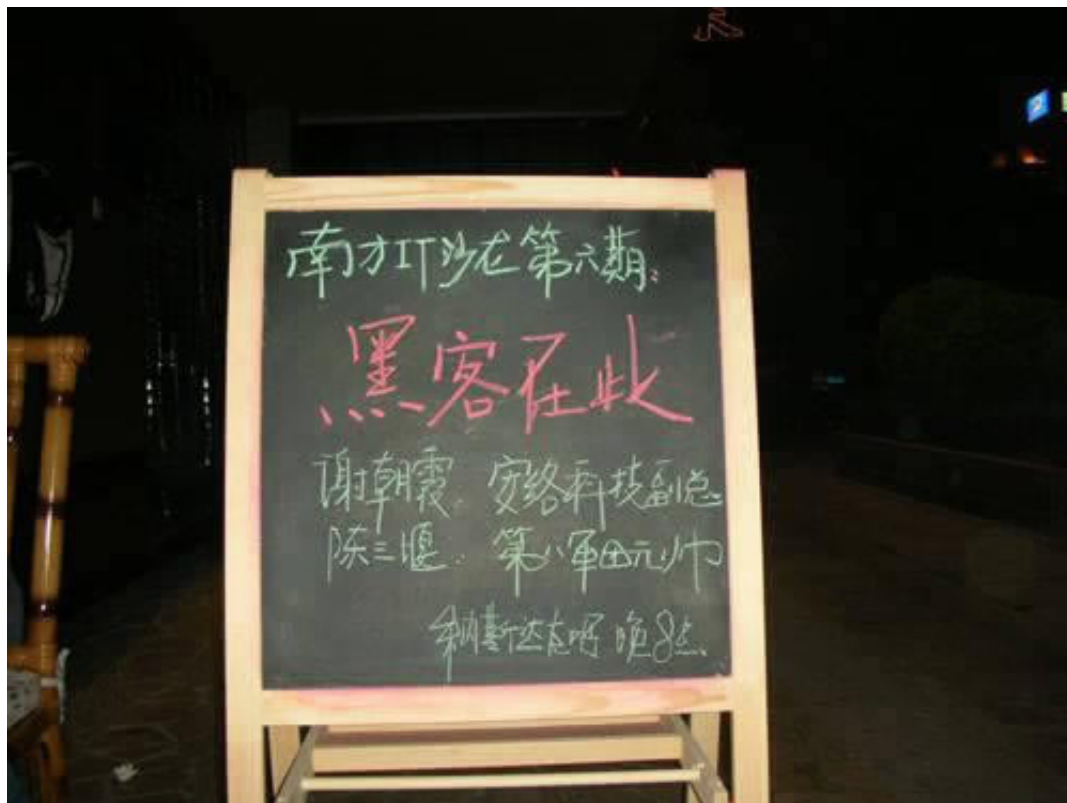 南方IT沙龙第六期:
黑客在此
谢朝霞. 安络科技副总
陈三堰. 第八军团元帅
斯达 晚8点